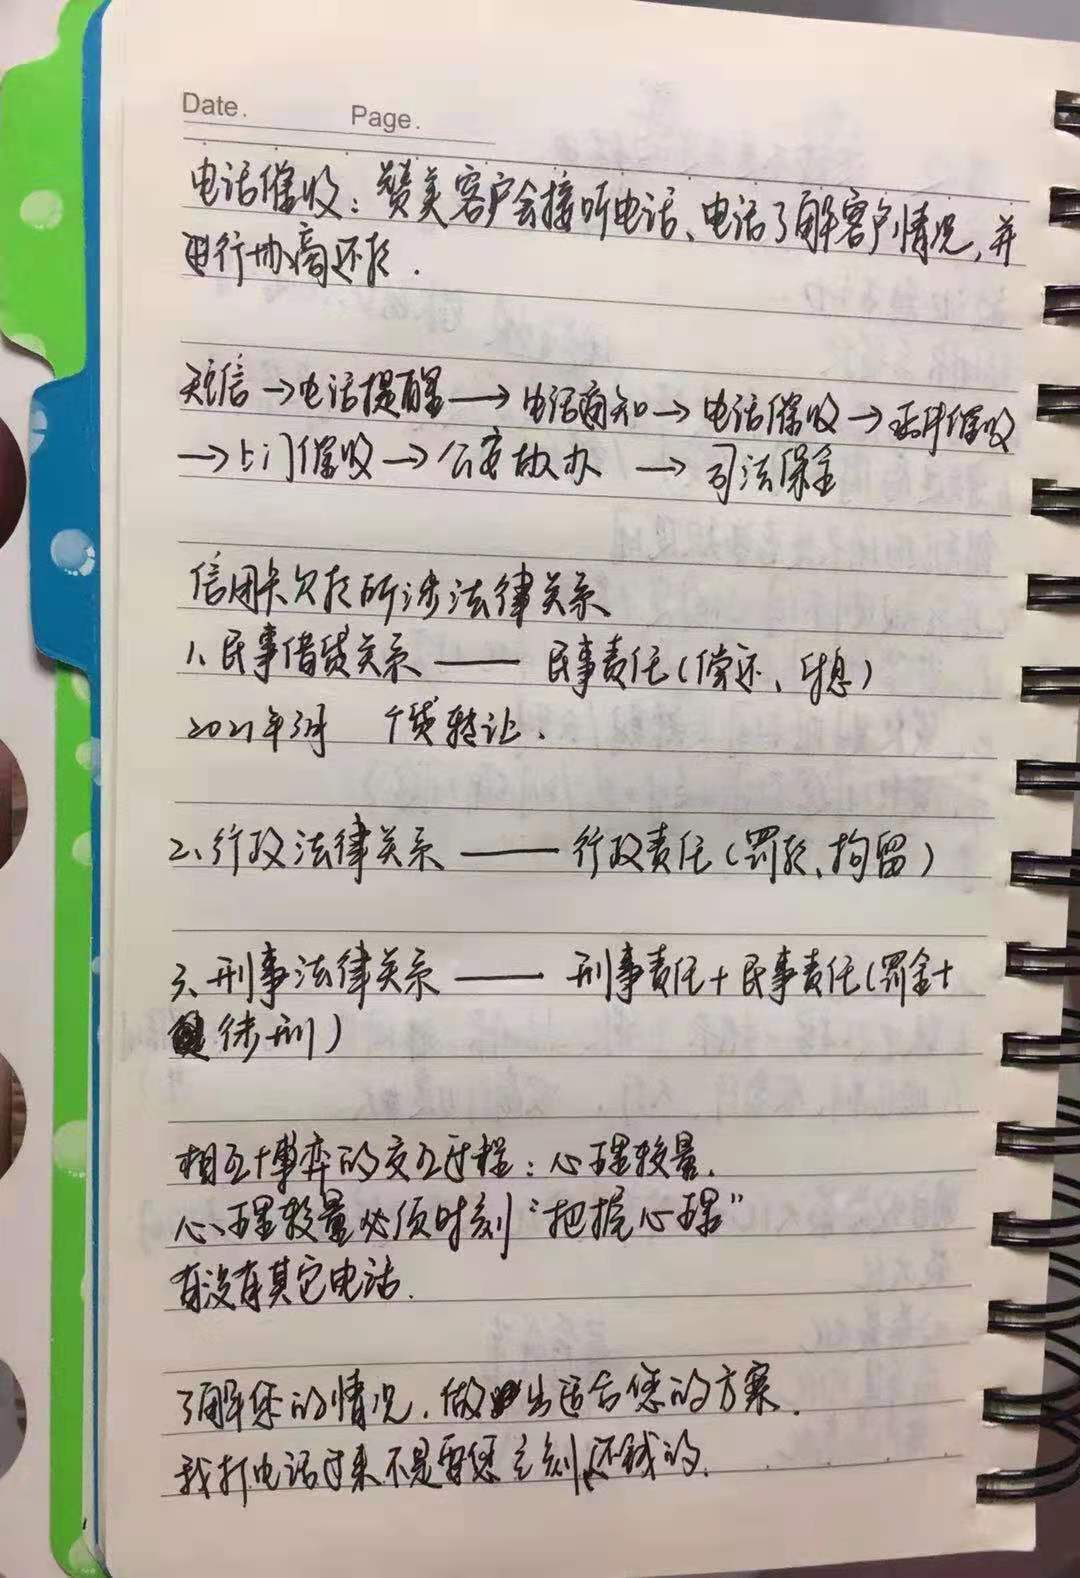 Date.
Page.
电话催收：赞美客户会接听电话、电话了解客户情况，并
进行协商还款.
短信→电话提醒→电话商知→电话催收→信件催收
→上门催收→公安协办→司法保全
信用卡欠款所涉法律关系
1、民事借贷关系——民事责任(偿还、利息)
2021年3月 个贷转让.
2、行政法律关系——行政责任(罚款、拘留)
3、刑事法律关系——刑事责任+民事责任(罚金+
徒刑)
相互博弈的交互过程：心理较量.
心理较量必须时刻“把握心理”
有没有其它电话.
了解您的情况，做出适合您的方案.
我打电话过来不是要您立刻还钱的.